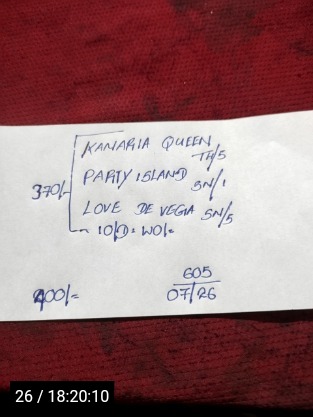 KANARIA QUEEN TH/5
370/- PARTY ISLAND 3N/1
LOVE DE VEGA 5N/5
400/= 605
07/26
26 / 18:20:10